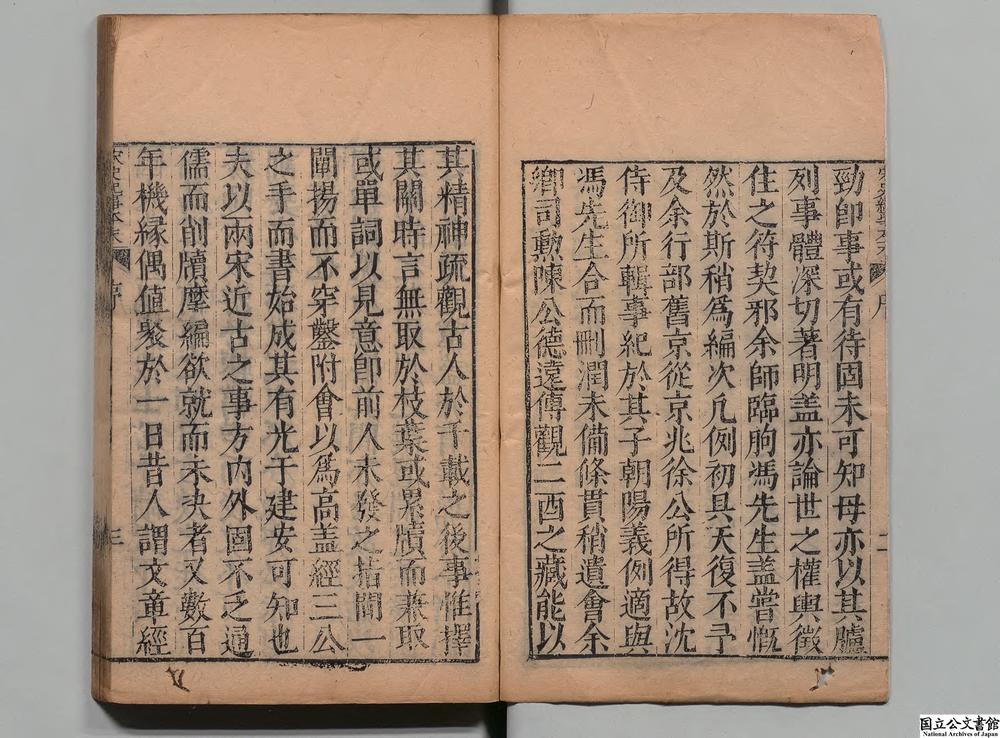 勁卽事或有待固未可知毋亦以其臚
列事體深切著明盖亦論世之權輿徵
往之符契邪余師臨朐馮先生盖嘗慨
然於斯稍爲編次凡例初具天復不予
及余行部舊京從京兆徐公所得故沈
侍御所輯事紀於其子朝陽義例適與
馮先生合而刪潤未備條貫稍遺會余
鄉司勲陳公德遠傅觀二酉之藏能以
二
其精神疏觀古人於千載之後事惟擇
其關時言無取於枝葉或累牘而兼取
或單詞以見意卽前人未發之指間一
闡揚而不穿鑿附會以爲高盖經三公
之手而書始成其有光于建安可知也
夫以兩宋近古之事方内外固不乏通
儒而削牘摩編欲就而未决者又數百
年機緣偶值聚於一日昔人謂文章經
序
三
国立公文書館
National Archives of Japan